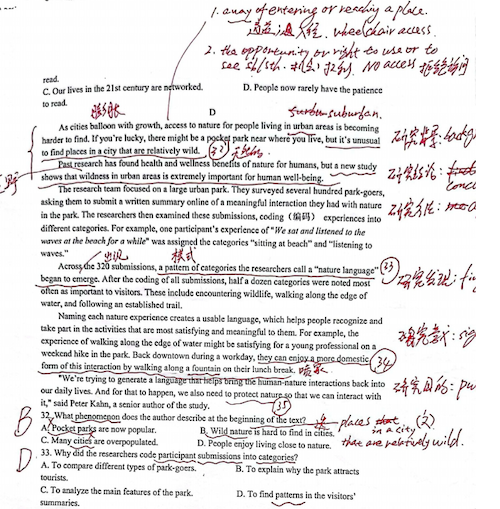 1. a way of entering or reaching a place.
通道；入径. wheelchair access.
2. the opportunity or right to use or to
see sb/sth. 机会；权利. NO access 拒绝访问
read.
C. Our lives in the 21st century are networked. D. People now rarely have the patience
to read.
膨胀 D suburban.
As cities balloon with growth, access to nature for people living in urban areas is becoming
harder to find. If you're lucky, there might be a pocket park near where you live, but it's unusual
to find places in a city that are relatively wild. 32
Past research has found health and wellness benefits of nature for humans, but a new study
shows that wildness in urban areas is extremely important for human well-being.
The research team focused on a large urban park. They surveyed several hundred park-goers,
asking them to submit a written summary online of a meaningful interaction they had with nature
in the park. The researchers then examined these submissions, coding（编码） experiences into
different categories. For example, one participant's experience of "We sat and listened to the
waves at the beach for a while" was assigned the categories "sitting at beach" and "listening to
waves."
出现 模式
Across the 320 submissions, a pattern of categories the researchers call a "nature language" 33
began to emerge. After the coding of all submissions, half a dozen categories were noted most
often as important to visitors. These include encountering wildlife, walking along the edge of
water, and following an established trail.
Naming each nature experience creates a usable language, which helps people recognize and
take part in the activities that are most satisfying and meaningful to them. For example, the
experience of walking along the edge of water might be satisfying for a young professional on a
weekend hike in the park. Back downtown during a workday, they can enjoy a more domestic 34
form of this interaction by walking along a fountain on their lunch break. 喷泉
"We're trying to generate a language that helps bring the human-nature interactions back into
our daily lives. And for that to happen, we also need to protect nature so that we can interact with
it," said Peter Kahn, a senior author of the study. 35
B 32. What phenomenon does the author describe at the beginning of the text? places that
A. Pocket parks are now popular. B. Wild nature is hard to find in cities. in a city (2)
C. Many cities are overpopulated. D. People enjoy living close to nature. that are relatively wild.
D 33. Why did the researchers code participant submissions into categories?
A. To compare different types of park-goers. B. To explain why the park attracts
tourists.
C. To analyze the main features of the park. D. To find patterns in the visitors'
summaries.
研究背景:
研究结论:
研究方法:
研究发现:
研究意义: sig
研究目的: pu